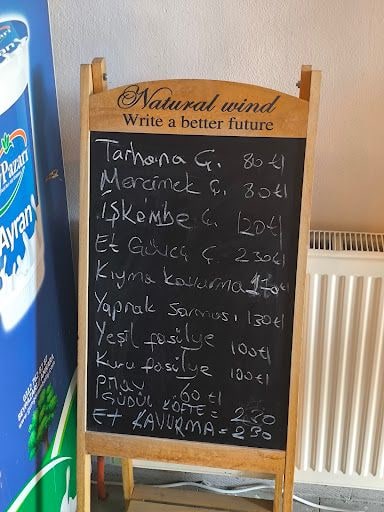 Natural wind
Write a better future
Tarhana Ç. 80 tl
Mercimek Ç. 80 tl
İşkembe Ç. 120 tl
Et Güveç Ç. 230 tl
Kıyma kavurma 170 tl
Yaprak Sarması 130 tl
Yeşil fasülye 100 tl
Kuru fasülye 100 tl
Pilav 60 tl
GÜDÜL KÖFTE = 230
Et KAVURMA = 230
Pazarı
Ayran